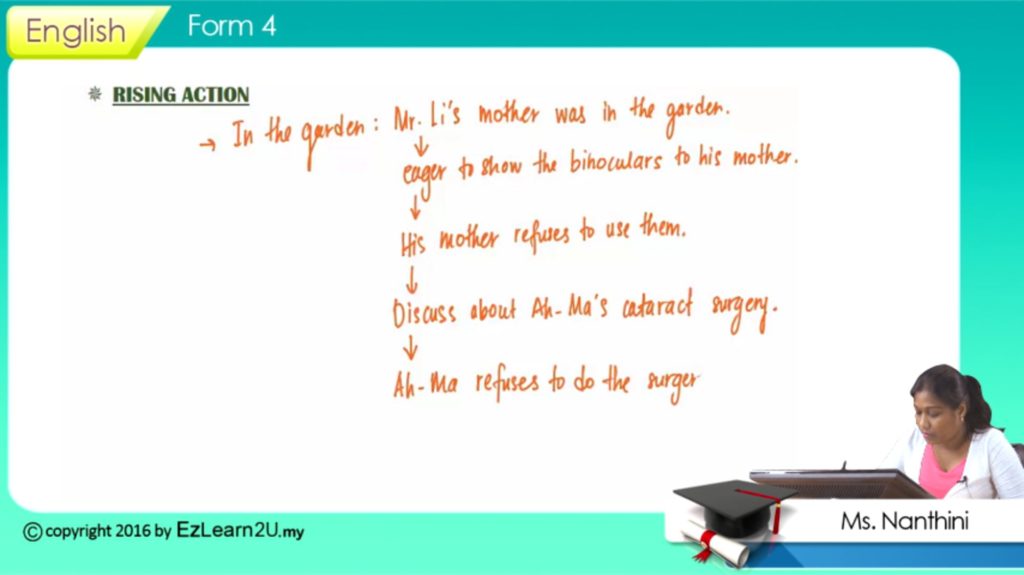 English
Form 4
RISING ACTION
→ In the garden: Mr. Li's mother was in the garden.
↓
eager to show the binoculars to his mother.
↓
His mother refuses to use them.
↓
Discuss about Ah-Ma's cataract surgery.
↓
Ah-Ma refuses to do the surger
Ms. Nanthini
© copyright 2016 by EzLearn2U.my